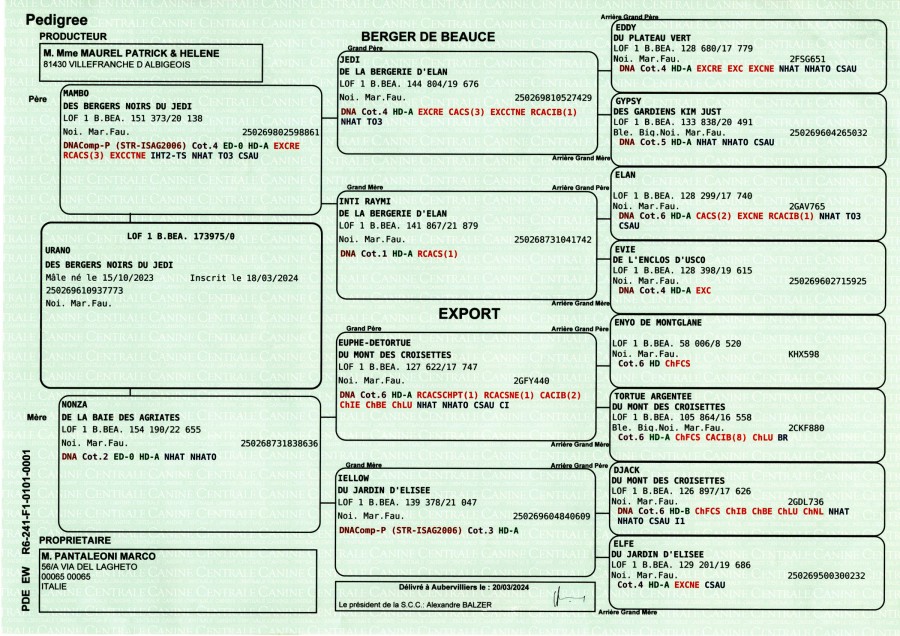 Pedigree
PRODUCTEUR
M. Mme MAUREL PATRICK & HELENE
81430 VILLEFRANCHE D ALBIGEOIS
BERGER DE BEAUCE
EXPORT
Père
MAMBO
DES BERGERS NOIRS DU JEDI
LOF 1 B.BEA. 151 373/20 138
Noi. Mar.Fau. 250269802598861
DNAComp-P (STR-ISAG2006) Cot.4 ED-0 HD-A EXCRE
RCACS(3) EXCCTNE IHT2-TS NHAT TO3 CSAU
LOF 1 B.BEA. 173975/0
URANO
DES BERGERS NOIRS DU JEDI
Mâle né le 15/10/2023 Inscrit le 18/03/2024
250269610937773
Noi. Mar.Fau.
Mère
NONZA
DE LA BAIE DES AGRIATES
LOF 1 B.BEA. 154 190/22 655
Noi. Mar.Fau. 250268731838636
DNA Cot.2 ED-0 HD-A NHAT NHATO
PROPRIETAIRE
M. PANTALEONI MARCO
56/A VIA DEL LAGHETO
00065 00065
ITALIE
PDE EW R6-241-F1-0101-0001
Grand Père
JEDI
DE LA BERGERIE D'ELAN
LOF 1 B.BEA. 144 804/19 676
Noi. Mar.Fau. 250269810527429
DNA Cot.4 HD-A EXCRE CACS(3) EXCCTNE RCACIB(1)
NHAT TO3
Grand Mère
INTI RAYMI
DE LA BERGERIE D'ELAN
LOF 1 B.BEA. 141 867/21 879
Noi. Mar.Fau. 250268731041742
DNA Cot.1 HD-A RCACS(1)
Grand Père
EUPHE-DETORTUE
DU MONT DES CROISETTES
LOF 1 B.BEA. 127 622/17 747
Noi. Mar.Fau. 2GFY440
DNA Cot.6 HD-A RCACSCHPT(1) RCACSNE(1) CACIB(2)
ChIE ChBE ChLU NHAT NHATO CSAU CI
Grand Mère
IELLOW
DU JARDIN D'ELISEE
LOF 1 B.BEA. 139 378/21 047
Noi. Mar.Fau. 250269604840609
DNAComp-P (STR-ISAG2006) Cot.3 HD-A
Délivré à Aubervilliers le : 20/03/2024
Le président de la S.C.C.: Alexandre BALZER
Arrière Grand Père
EDDY
DU PLATEAU VERT
LOF 1 B.BEA. 128 680/17 779
Noi. Mar.Fau. 2FSG651
DNA Cot.4 HD-A EXCRE EXC EXCNE NHAT NHATO CSAU
GYPSY
DES GARDIENS KIM JUST
LOF 1 B.BEA. 133 838/20 491
Ble. Big.Noi. Mar.Fau. 250269604265032
DNA Cot.5 HD-A NHAT NHATO CSAU
Arrière Grand Mère
Arrière Grand Père
ELAN
LOF 1 B.BEA. 128 299/17 740
Noi. Mar.Fau. 2GAV765
DNA Cot.6 HD-A CACS(2) EXCNE RCACIB(1) NHAT TO3
CSAU
EVIE
DE L'ENCLOS D'USCO
LOF 1 B.BEA. 128 398/19 615
Noi. Mar.Fau. 250269602715925
DNA Cot.4 HD-A EXC
Arrière Grand Mère
Arrière Grand Père
ENYO DE MONTGLANE
LOF 1 B.BEA. 58 006/8 520
Noi. Mar.Fau. KHX598
Cot.6 HD ChFCS
TORTUE ARGENTEE
DU MONT DES CROISETTES
LOF 1 B.BEA. 105 864/16 558
Ble. Big.Noi. Mar.Fau. 2CKF880
Cot.6 HD-A ChFCS CACIB(8) ChLU BR
Arrière Grand Mère
Arrière Grand Père
DJACK
DU MONT DES CROISETTES
LOF 1 B.BEA. 126 897/17 626
Noi. Mar.Fau. 2GDL736
DNA Cot.6 HD-B ChFCS ChIB ChBE ChLU ChNL NHAT
NHATO CSAU I1
ELFE
DU JARDIN D'ELISEE
LOF 1 B.BEA. 129 201/19 686
Noi. Mar.Fau. 250269500300232
Cot.4 HD-A EXCNE CSAU
Arrière Grand Mère